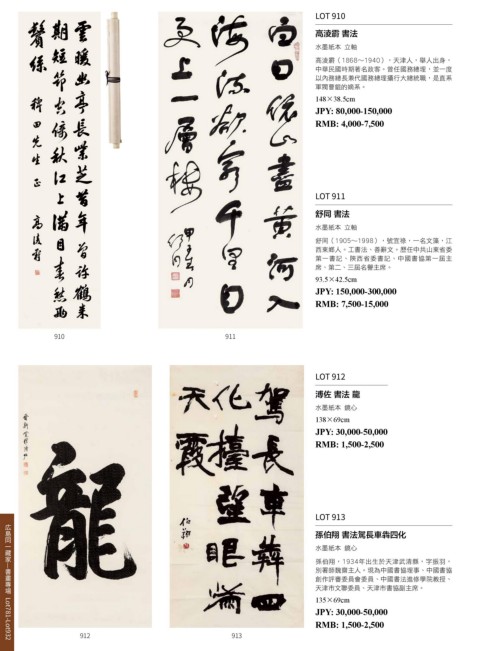 雲暖幽亭長紫芝昔年曾許鶴來
期短節
秋江上滿目
鬢絲
田先生正
高淩霨
910
白日依山盡黃河入
海流欲窮千里目
更上一層樓
舒同
911
LOT 910
高淩霨 書法
水墨紙本 立軸
高淩霨（1868～1940），天津人，舉人出身，
中華民國時期著名政客。曾任國務總理，並一度
以內務總長兼代國務總理攝行大總統職，是直系
軍閥曹錕的嫡系。
148×38.5cm
JPY: 80,000-150,000
RMB: 4,000-7,500
LOT 911
舒同 書法
水墨紙本 立軸
舒同（1905～1998），號宜祿，一名文藻，江
西東鄉人。工書法，善辭文。歷任中共山東省委
第一書記、陝西省委書記、中國書協第一屆主
席，第二、三屆名譽主席。
93.5×42.5cm
JPY: 150,000-300,000
RMB: 7,500-15,000
龍
912
駕長車犇四
化擡望眼滿
天霞
伯翔
913
LOT 912
溥佐 書法 龍
水墨紙本 鏡心
138×69cm
JPY: 30,000-50,000
RMB: 1,500-2,500
LOT 913
孫伯翔 書法駕長車犇四化
水墨紙本 鏡心
孫伯翔，1934年出生於天津武清縣，字振羽，
別署師魏齋主人。現為中國書協理事、中國書協
創作評審委員會委員、中國書法進修學院教授、
天津市文聯委員、天津市書協副主席。
135×69cm
JPY: 30,000-50,000
RMB: 1,500-2,500
広島同一藏家—書畫專場 Lot781-Lot932